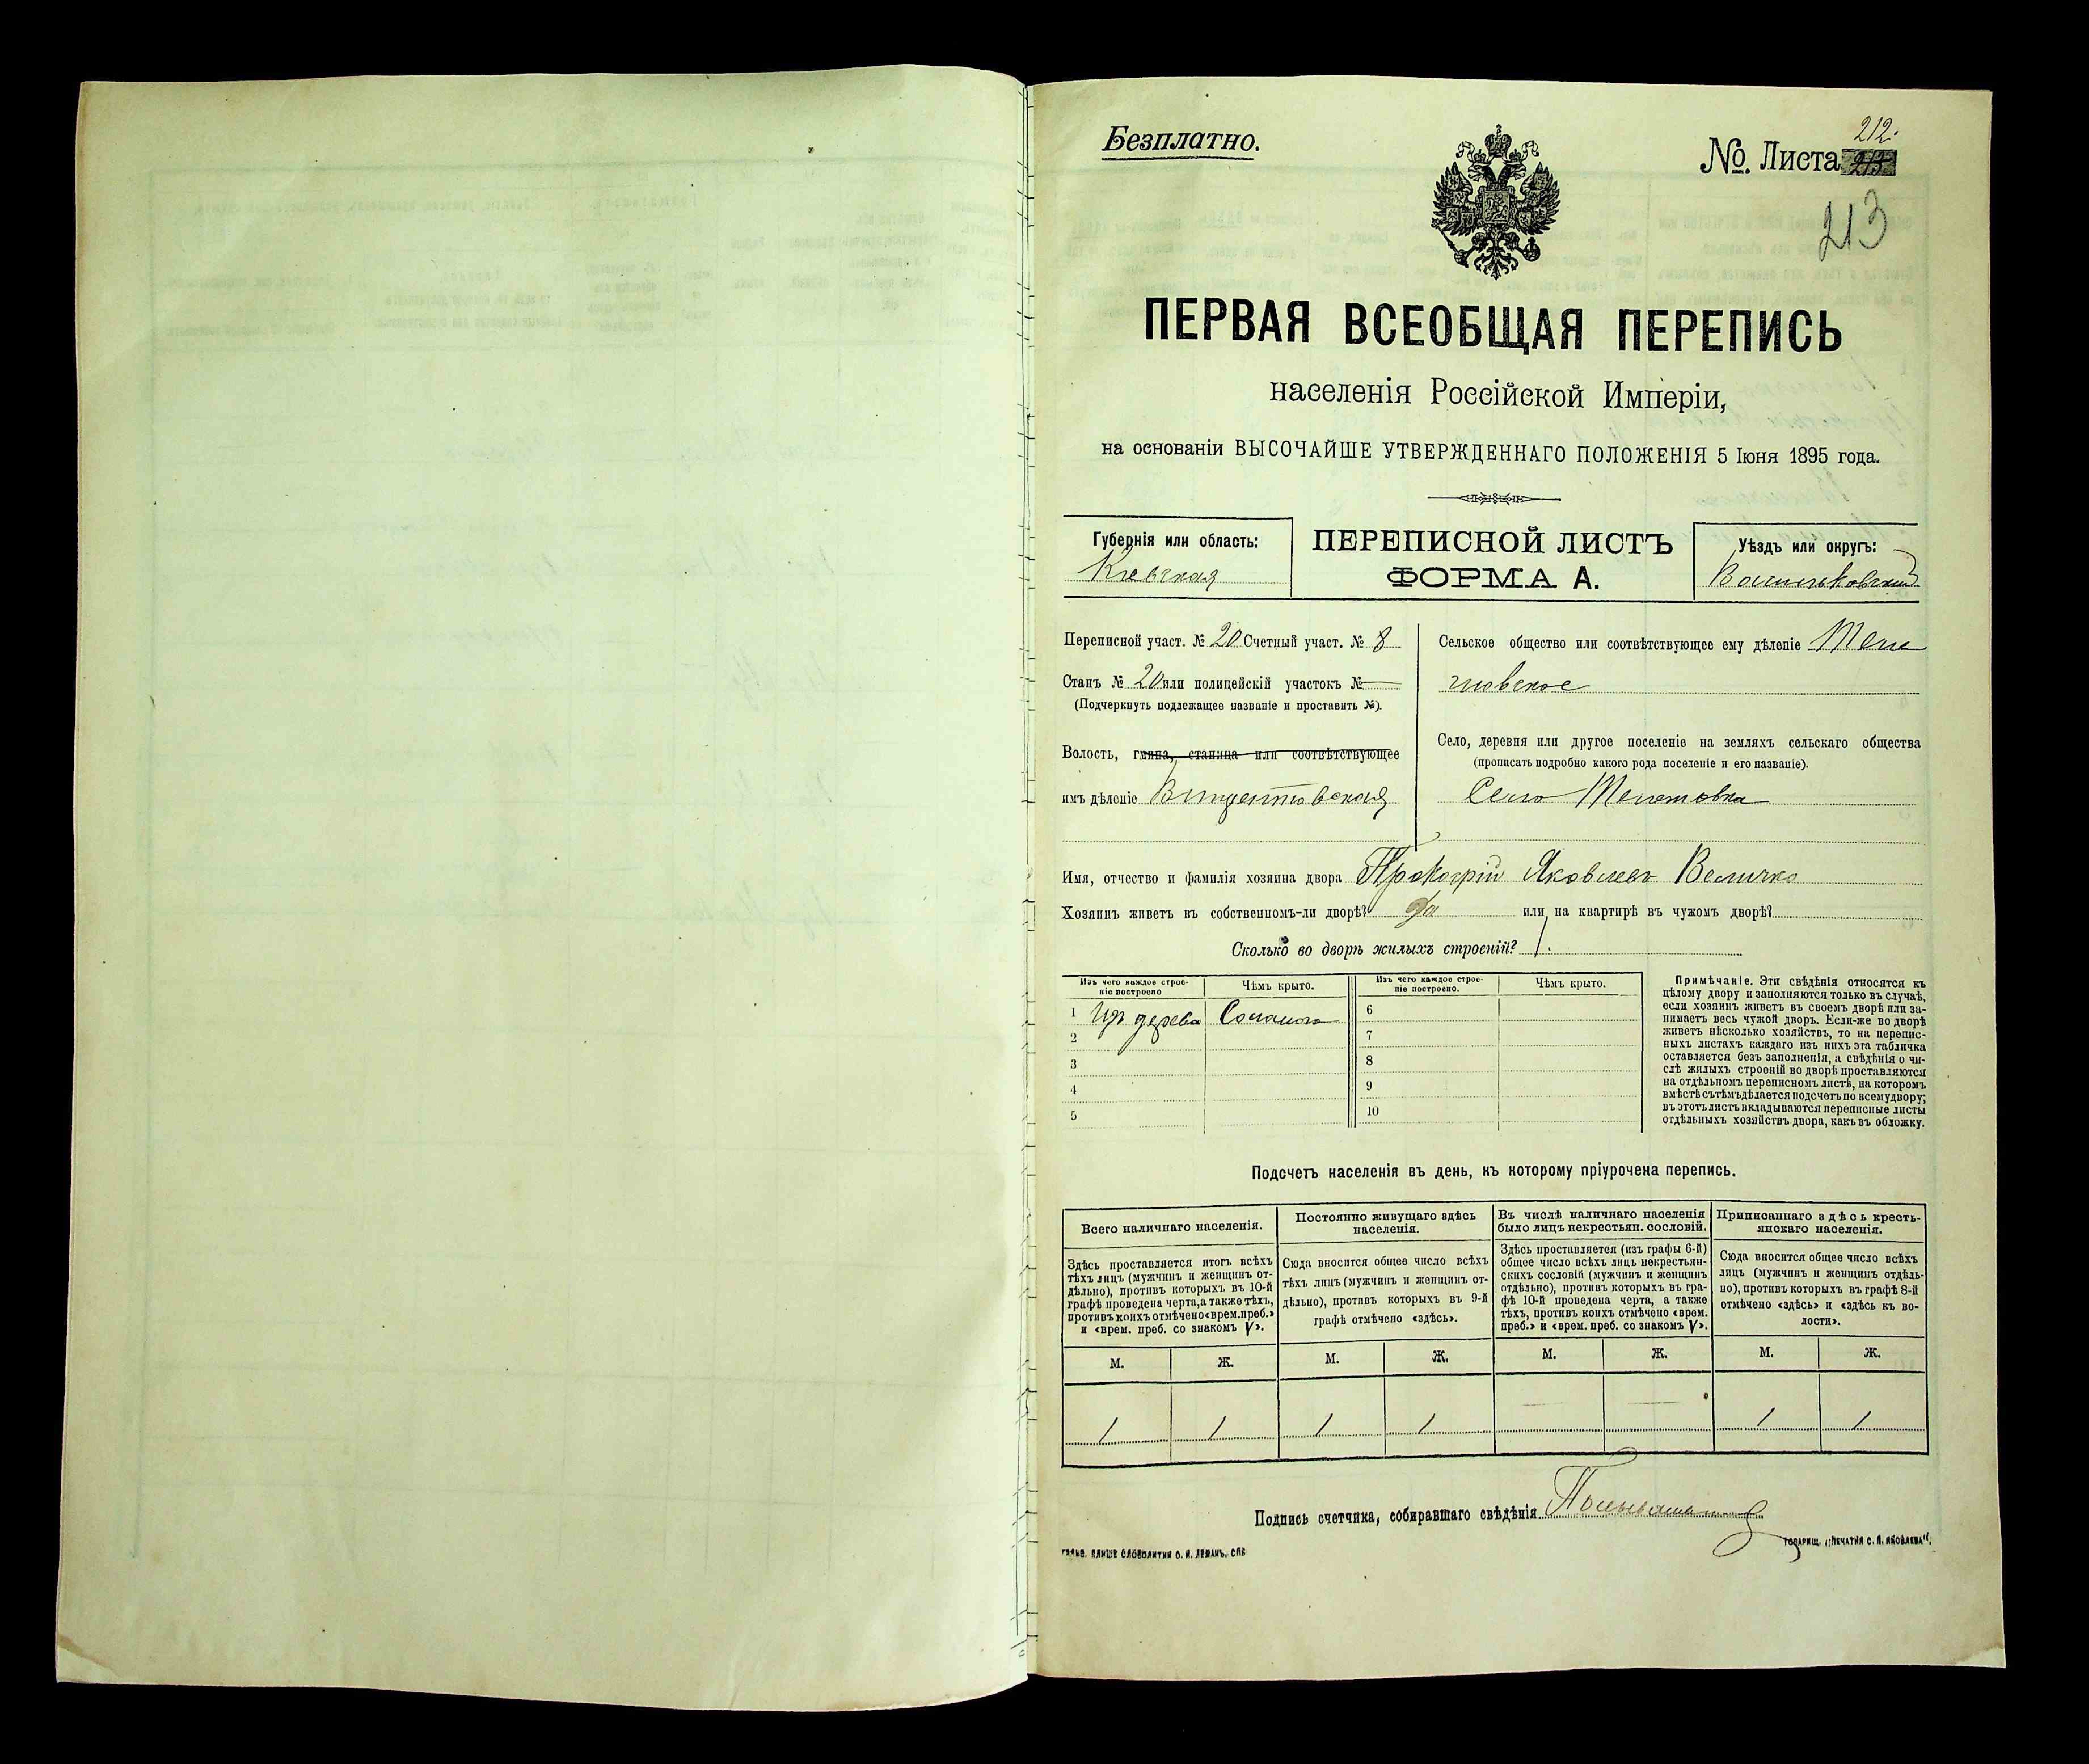 Безплатно.
212.
№. Листа 213
213
ПЕРВАЯ ВСЕОБЩАЯ ПЕРЕПИСЬ
населенія Россійской Имперіи,
на основаніи ВЫСОЧАЙШЕ УТВЕРЖДЕННАГО ПОЛОЖЕНІЯ 5 Іюня 1895 года.
Губернія или область:
Кіевская
ПЕРЕПИСНОЙ ЛИСТЪ
ФОРМА А.
Уѣздъ или округъ:
Васильковскій
Переписной участ. № 20 Счетный участ. № 8
Станъ № 20 или полицейскій участокъ № —
(Подчеркнуть подлежащее названіе и проставить №).
Волость, гмина, станица или соотвѣтствующее
имъ дѣленіе Винцентовская
Сельское общество или соотвѣтствующее ему дѣленіе
Село, деревня или другое поселеніе на земляхъ сельскаго общества
(прописать подробно какого рода поселеніе и его названіе).
Село
Имя, отчество и фамилія хозяина двора Прокофій Яковлевъ Величко
Хозяинъ живетъ въ собственномъ-ли дворѣ? Да или на квартирѣ въ чужомъ дворѣ?
Сколько во дворѣ жилыхъ строеній? 1.
Изъ чего каждое строе-
ніе построено
Чѣмъ крыто.
Изъ чего каждое строе-
ніе построено.
Чѣмъ крыто.
1 Изъ дерева Соломою
2
3
4
5
6
7
8
9
10
Примѣчаніе. Эти свѣдѣнія относятся къ
цѣлому двору и заполняются только въ случаѣ,
если хозяинъ живетъ въ своемъ дворѣ или за-
нимаетъ весь чужой дворъ. Если-же во дворѣ
живетъ нѣсколько хозяйствъ, то на перепис-
ныхъ листахъ каждаго изъ нихъ эта табличка
оставляется безъ заполненія, а свѣдѣнія о чи-
слѣ жилыхъ строеній во дворѣ проставляются
на отдѣльномъ переписномъ листѣ, на которомъ
вмѣстѣ съ тѣмъ дѣлается подсчетъ по всему двору;
въ этотъ листъ вкладываются переписные листы
отдѣльныхъ хозяйствъ двора, какъ въ обложку.
Подсчетъ населенія въ день, къ которому пріурочена перепись.
Всего наличнаго населенія.
Здѣсь проставляется итогъ всѣхъ
тѣхъ лицъ (мужчинъ и женщинъ от-
дѣльно), противъ которыхъ въ 10-й
графѣ проведена черта, а также тѣхъ,
противъ коихъ отмѣчено «врем. преб.»
и «врем. преб. со знакомъ V».
Постоянно живущаго здѣсь
населенія.
Сюда вносится общее число всѣхъ
тѣхъ лицъ (мужчинъ и женщинъ от-
дѣльно), противъ которыхъ въ 9-й
графѣ отмѣчено «здѣсь».
Въ числѣ наличнаго населенія
было лицъ некрестьян. сословій.
Здѣсь проставляется (изъ графы 6-й)
общее число всѣхъ лицъ некрестьян-
скихъ сословій (мужчинъ и женщинъ
отдѣльно), противъ которыхъ въ гра-
фѣ 10-й проведена черта, а также
тѣхъ, противъ коихъ отмѣчено «врем.
преб.» и «врем. преб. со знакомъ V».
Приписаннаго здѣсь кресть-
янскаго населенія.
Сюда вносится общее число всѣхъ
лицъ (мужчинъ и женщинъ отдѣль-
но), противъ которыхъ въ графѣ 8-й
отмѣчено «здѣсь» и «здѣсь къ во-
лости».
М. Ж. М. Ж. М. Ж. М. Ж.
1 1 1 1 — — 1 1
Подпись счетчика, собиравшаго свѣдѣнія
СЛОВОЛИТНИ О. И. ЛЕМАНЪ, СПБ
ТОВАРИЩ. „ПЕЧАТНЯ С. П. ЯКОВЛЕВА".